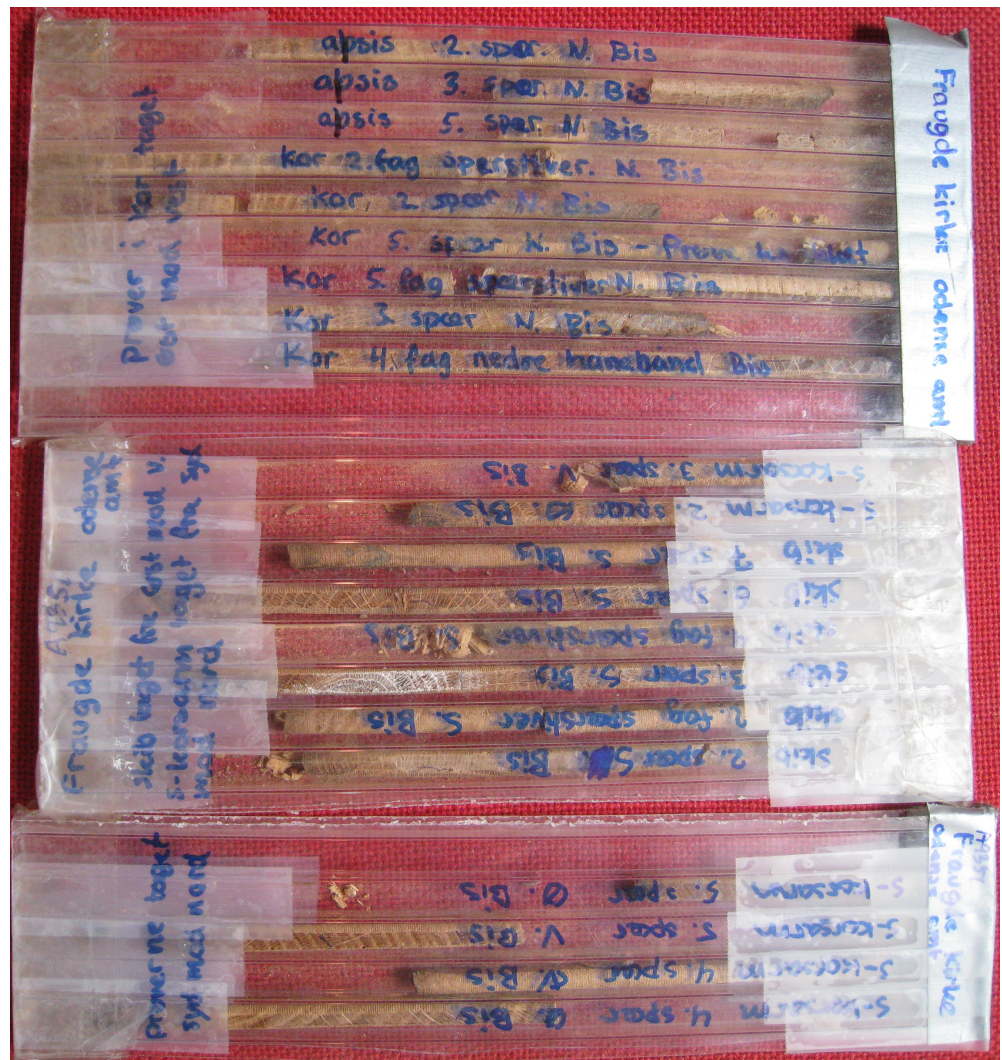 apsis 2. spær. N. Bis
apsis 3. spær N. Bis
apsis 5. spær N. Bis
Kor 2. fag spærstiver. N. Bis
Kor, 2. spær N. Bis
Kor 5. spær N. Bis - Prøve
Kor 5. fag spærstiver N. Bis
Kor 3. spær N. Bis
Kor 4. fag nedre hanebånd Bis
prøver i kor taget
øst mod vest
Fraugde kirke odense amt
Fraugde kirke odense
amt
skib taget fra øst mod v.
s-korsarm taget fra syd
mod nord.
s-korsarm 3. spær V. Bis
s-korsarm 2. spær Ø. Bis
skib 7. spær S. Bis
skib 6. spær S. Bis
skib 4. fag spærstiver S. Bis
skib 3. spær S. Bis
skib 2. fag spærstiver S. Bis
skib 2. spær S. Bis
prøverne taget
syd mod nord
s-korsarm 5. spær Ø. Bis
s-korsarm 5. spær V. Bis
s-korsarm 4. spær V. Bis
s-korsarm 4. spær Ø. Bis
Fraugde kirke
odense amt